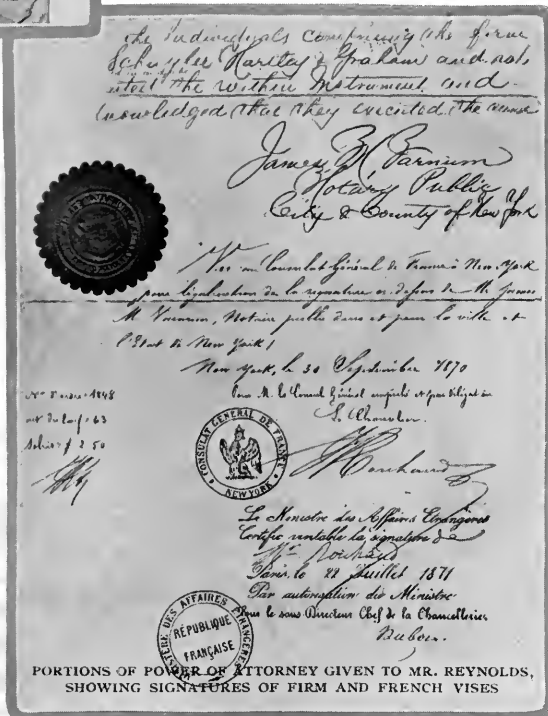 the individuals composing the firm
Schuyler Hartley & Graham and
the within Instrument and
knowledged that they executed the same
James M Varnum
Notary Public
City & County of New York
Vu au Consulat Général de France à New York
pour légalisation de la signature ci dessus de M. James
M Varnum, Notaire public dans et pour la ville et
l'Etat de New York/
New York, le 30 Septembre 1870
1848
63
2 50
Le Chancelier.
CONSULAT GENERAL DE FRANCE
NEW YORK
Le Ministre des Affaires Etrangères
Certifie véritable la signature de
Mr.
Paris, le 22 Juillet 1871
Par autorisation du Ministre
Pour le sous Directeur Chef de la Chancellerie
Dubois.
MINISTÈRE DES AFFAIRES ETRANGÈRES
RÉPUBLIQUE
FRANÇAISE
PORTIONS OF POWER OF ATTORNEY GIVEN TO MR. REYNOLDS,
SHOWING SIGNATURES OF FIRM AND FRENCH VISES